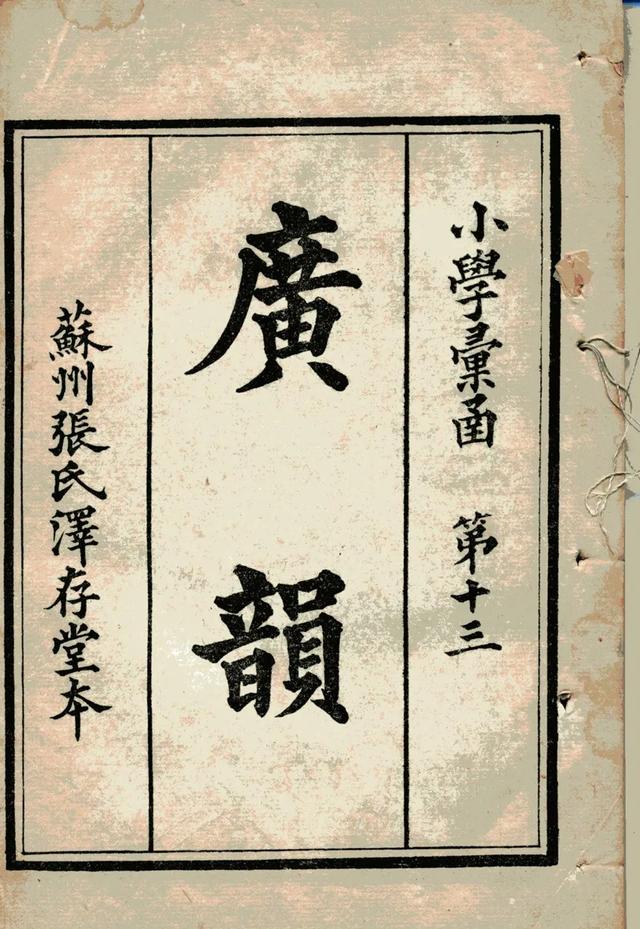 小學彙函 第十三
廣韻
蘇州張氏澤存堂本